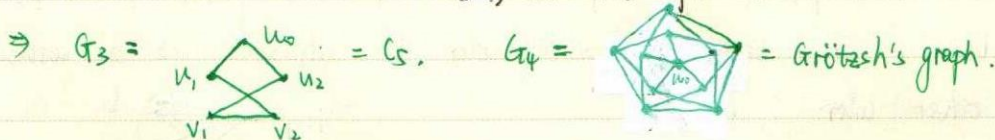 ⇒ G₃ = u₀ u₁ u₂ v₁ v₂ = C₅. G₄ = u₀ = Grötzsh's graph.